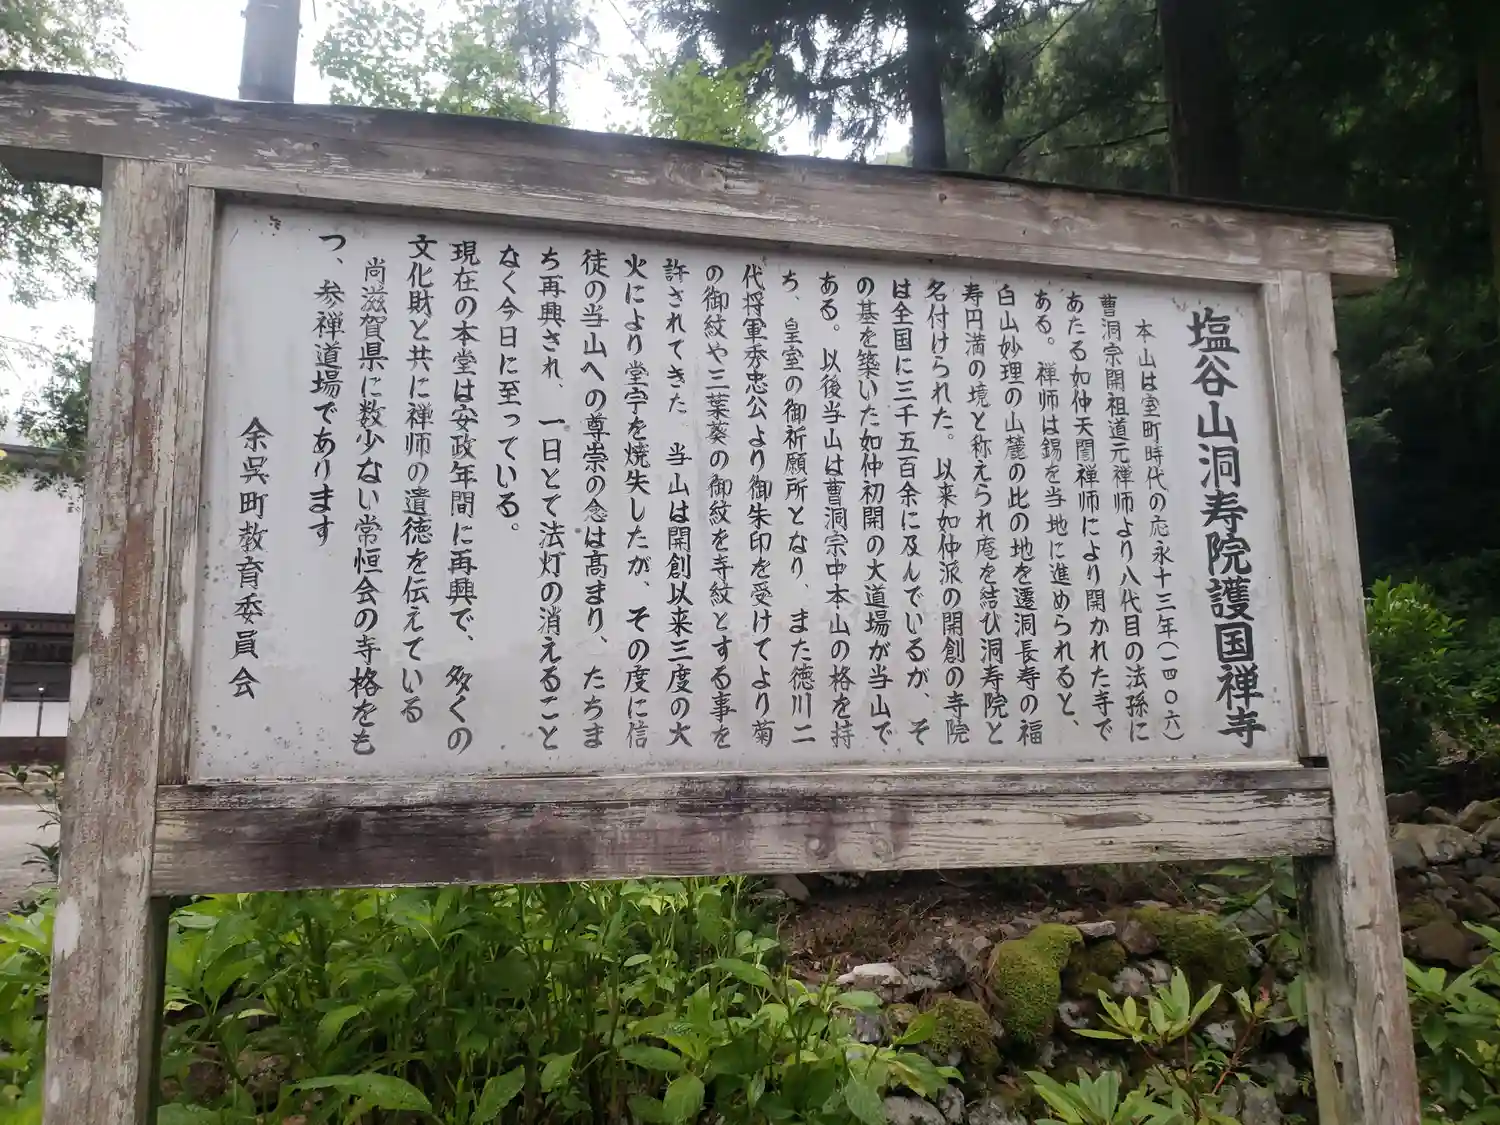 塩谷山洞寿院護国禅寺
本山は室町時代の応永十三年(一四〇六)
曹洞宗開祖道元禅師より八代目の法孫に
あたる如仲天誾禅師により開かれた寺で
ある。禅師は錫を当地に進められると、
白山妙理の山麓の此の地を遷洞長寿の福
寿円満の境と称えられ庵を結び洞寿院と
名付けられた。以来如仲派の開創の寺院
は全国に三千五百余に及んでいるが、そ
の基を築いた如仲初開の大道場が当山で
ある。以後当山は曹洞宗中本山の格を持
ち、皇室の御祈願所となり、また徳川二
代将軍秀忠公より御朱印を受けてより菊
の御紋や三葉葵の御紋を寺紋とする事を
許されてきた。当山は開創以来三度の大
火により堂宇を焼失したが、その度に信
徒の当山への尊崇の念は高まり、たちま
ち再興され、一日とて法灯の消えること
なく今日に至っている。
現在の本堂は安政年間に再興で、多くの
文化財と共に禅師の遺徳を伝えている
尚滋賀県に数少ない常恒会の寺格をも
つ、参禅道場であります
余呉町教育委員会